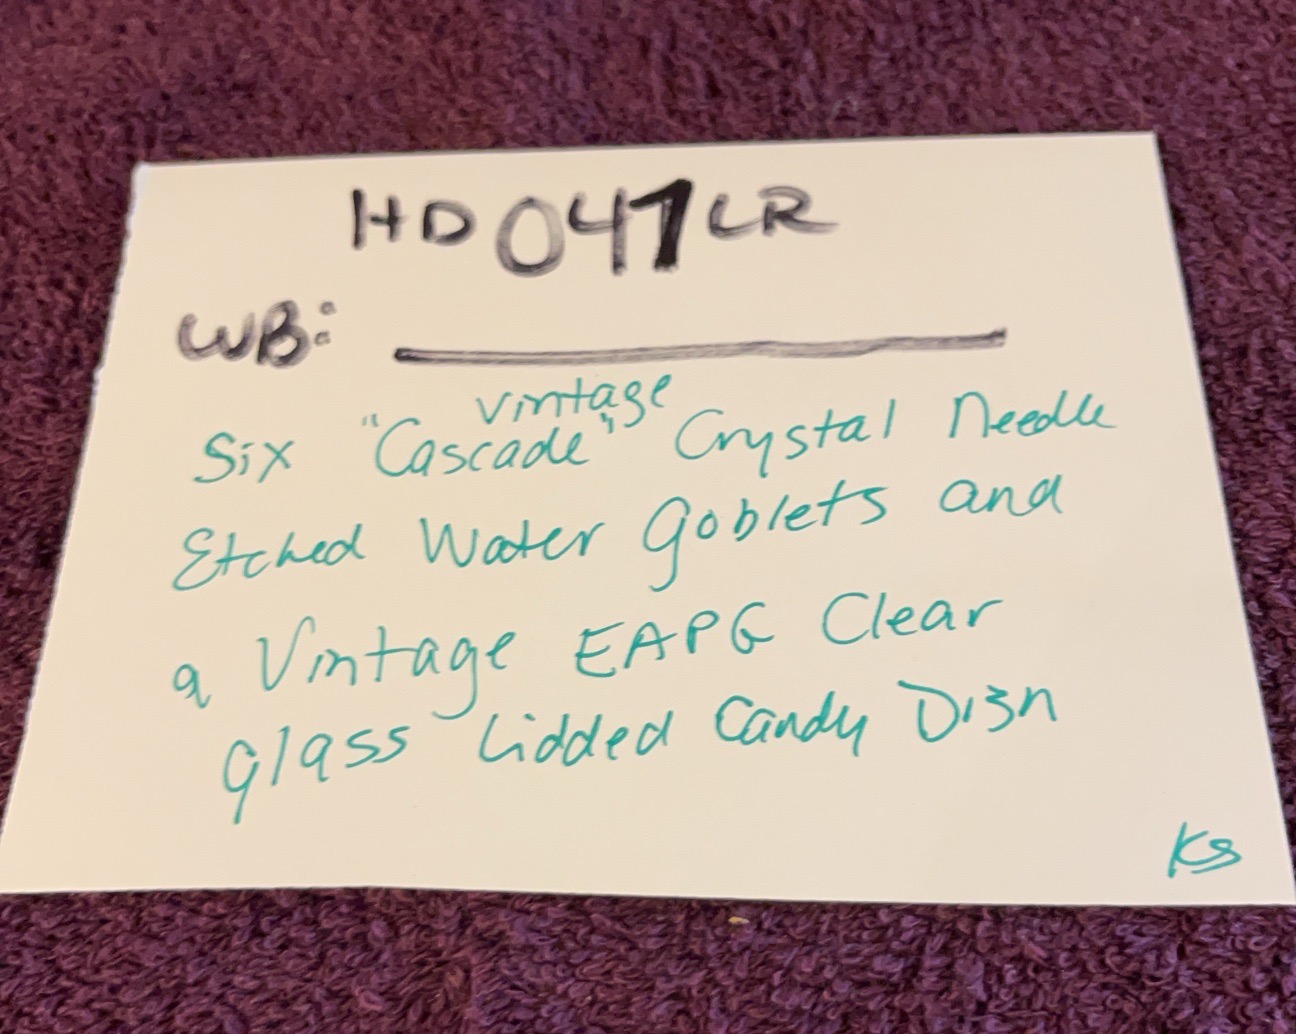 HD 047 LR
WB:
vintage
Six "Cascade" Crystal Needle
Etched Water Goblets and
a Vintage EAPG Clear
Glass Lidded Candy Dish
KS